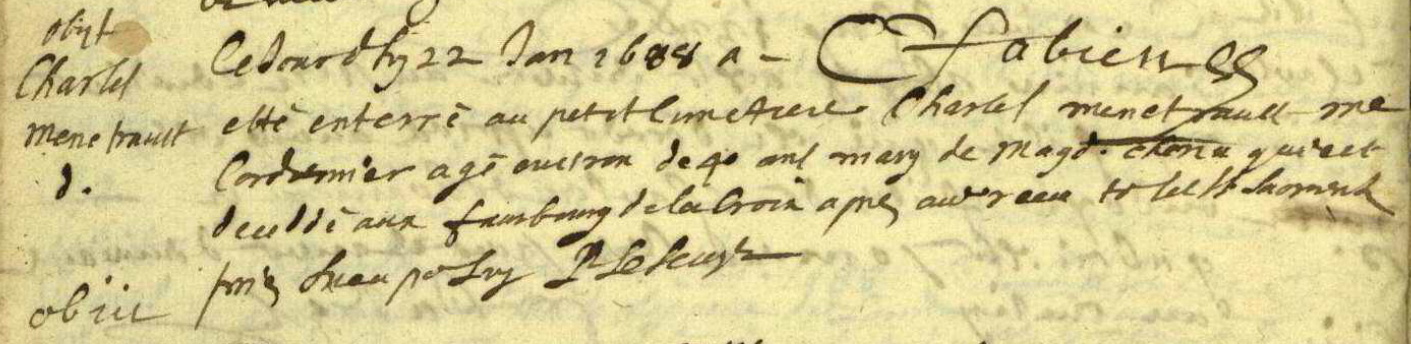 obiit
Charles
menetrault
d.
Cejourdhuy 22 Jan 1688 a - Fabien
esté enterré au petit Cimetiere Charles menetrault me
Cordonnier agé environ de 40 ans mary de Magd. qui est
decedé aux fauxbourg de la Croix apres avoir receu ts les sts sacremts
priez Dieu pr luy
obiit